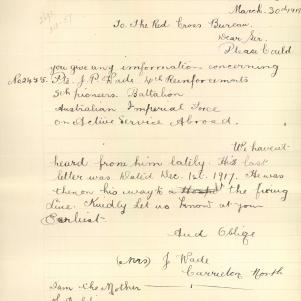 March. 30th 1918
To. The Red Cross Bureau.
Dear Sir.
Please Could
you give any information concerning
No 2455. Pte J. P. Wade 4th Reinforcements
5th pioneers Battalion
Australian Imperial Force
on Active Service Abroad.
We havent
heard from him lately. His last
letter was Dated Dec. 1st. 1917. He was
then on his way to the firing
line. Kindly let us know at your
Earliest
And Oblige
(Mrs) J Wade
North
I am the Mother